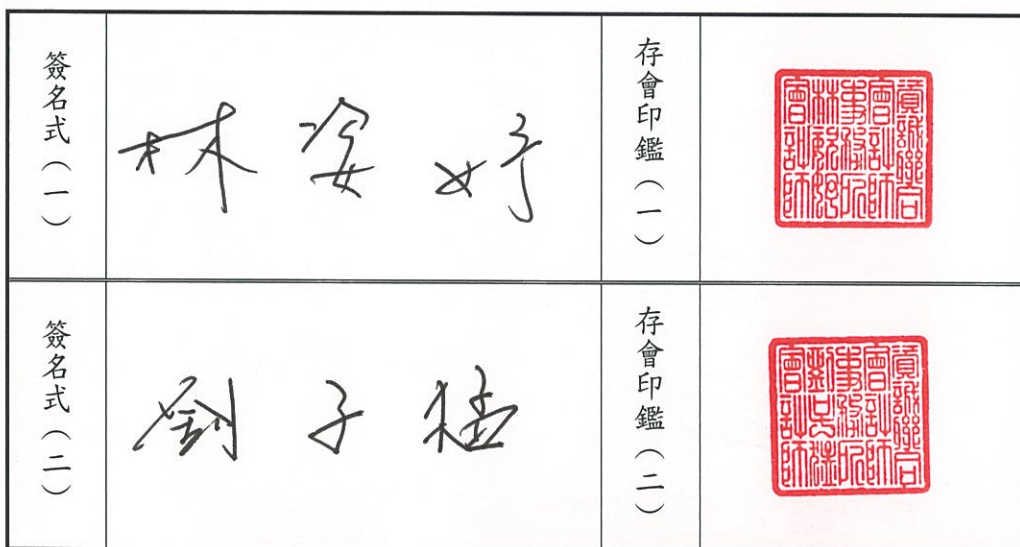 簽名式（一）
林姿妤
存會印鑑（一）
資誠聯合
會計師
事務所
林姿妤
會計師
簽名式（二）
劉子猛
存會印鑑（二）
資誠聯合
會計師
事務所
劉子猛
會計師